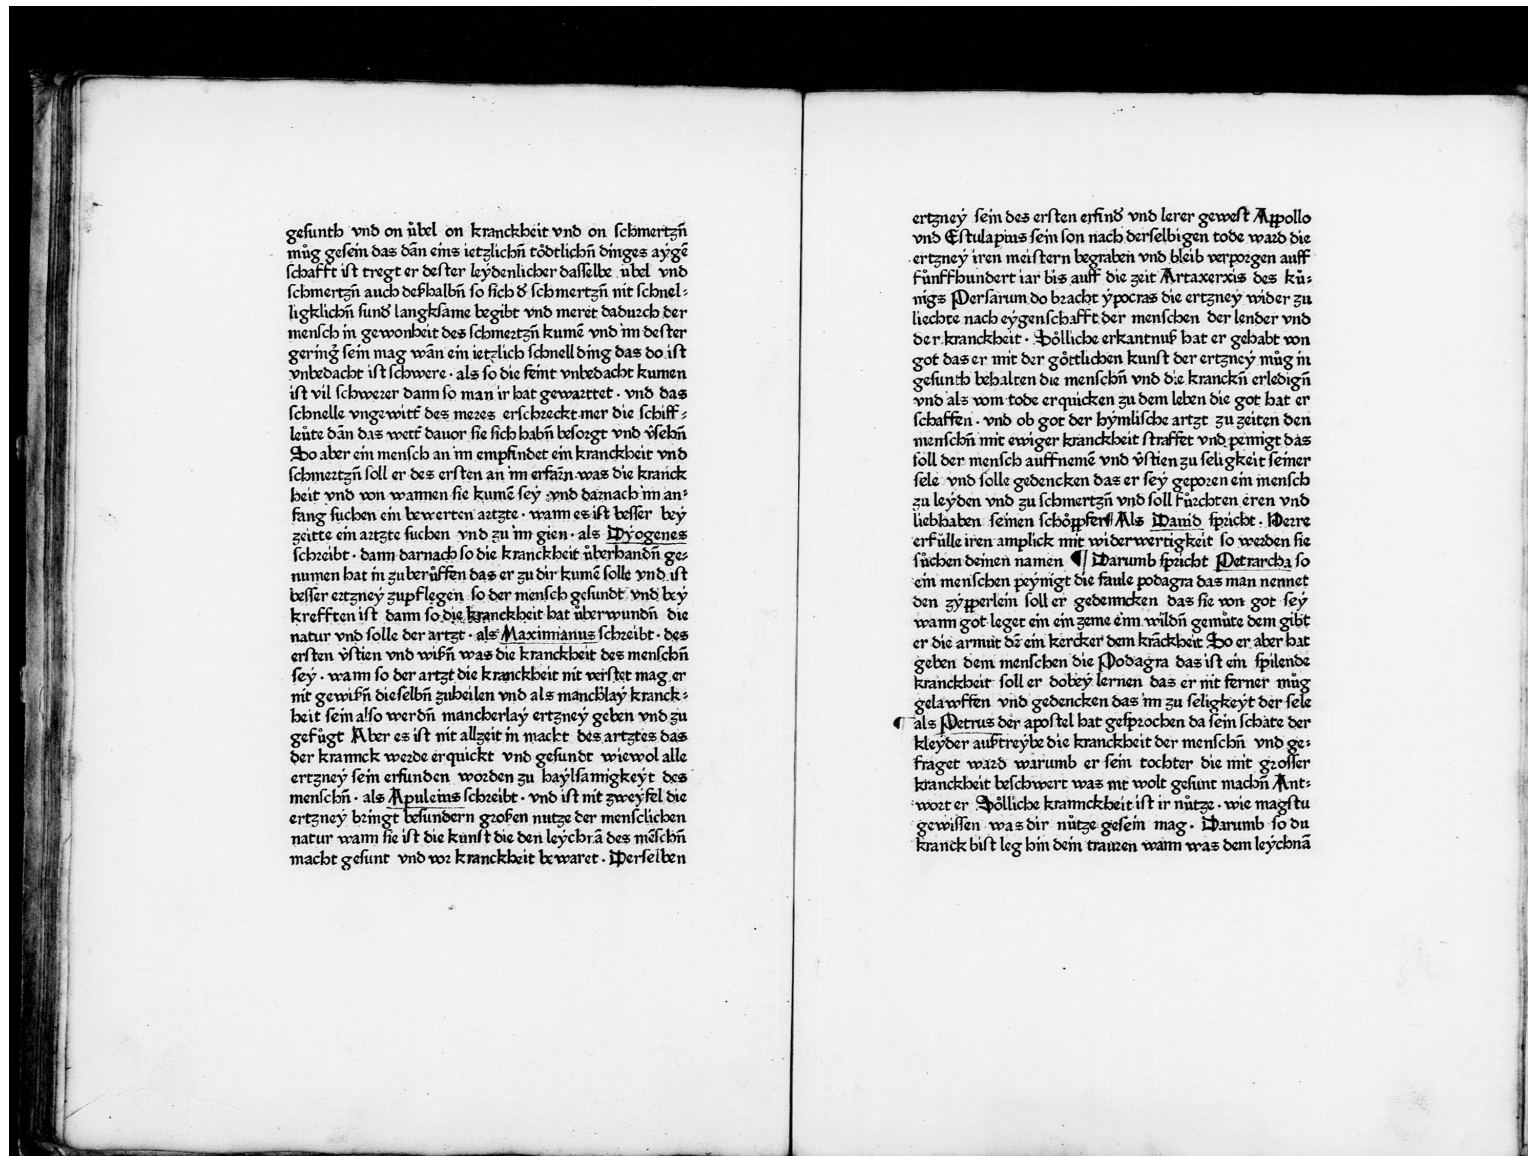 gesunth vnd on uͤbel on kranckheit vnd on schmertzn̄
muͤg gesein das dān eins ietzlichn̄ toͤdtlichn̄ dinges aygē
schafft ist tregt er dester leydenlicher dasselbe uͤbel vnd
schmertzn̄ auch deßhalbn̄ so sich ď schmertzn̄ nit schnel⸗
ligklichn̄ sunď langksame begibt vnd meret dadurch der
mensch in gewonheit des schmertzn̄ kumē vnd im dester
gering̃ sein mag wān ein ietzlich schnell ding das do ist
vnbedacht ist schwere · als so die feint vnbedacht kumen
ist vil schwerer dann so man ir hat gewarttet · vnd das
schnelle vngewitt̄ des meres erschreckt mer die schiff⸗
leuͤte dān das wett̄ dauor sie sich habn̄ besorgt vnd v̄sehn̄
So aber ein mensch an im empfindet ein kranckheit vnd
schmertzn̄ soll er des ersten an im erfarn̄ was die kranck
heit vnd von wannen sie kumē sey · vnd darnach im an⸗
fang suchen ein bewerten artzte · wann es ist besser bey
zeitte ein artzte suchen vnd zu im gien · als Dyogenes
schreibt · dann darnach so die kranckheit uͤberhandn̄ ge⸗
numen hat in zuberuͤffen das er zu dir kumē solle vnd ist
besser ertzney zupflegen so der mensch gesundt vnd bey
krefften ist dann so die kranckheit hat uͤberwundn̄ die
natur vnd solle der artzt · als Maximianus schreibt · des
ersten v̄stien vnd wißn̄ was die kranckheit des menschn̄
sey · wann so der artzt die kranckheit nit verstet mag er
nit gewißn̄ dieselbn̄ zuheilen vnd als manchlay kranck⸗
heit sein also werdn̄ mancherlay ertzney geben vnd zu
gefuͤgt Aber es ist nit allzeit in mackt des artztes das
der krannck werde erquickt vnd gesundt wiewol alle
ertzney sein erfunden worden zu haylsamigkeyt des
menschn̄ · als Apuleius schreibt · vnd ist nit zweyfel die
ertzney bringt besundern großen nutze der menschlichen
natur wann sie ist die kunst die den leychnā des mēschn̄
macht gesunt vnd vor kranckheit bewaret · Derselben
ertzney sein des ersten erfinď vnd lerer gewest Appollo
vnd Estulapius sein son nach derselbigen tode ward die
ertzney iren meistern begraben vnd bleib verporgen auff
fuͤnffhundert iar bis auff die zeit Artaxerxis des kuͤ⸗
nigs Persarum do bracht ypocras die ertzney wider zu
liechte nach eygenschafft der menschen der lender vnd
der kranckheit · Soͤlliche erkantnuß hat er gehabt von
got das er mit der goͤttlichen kunst der ertzney muͤg in
gesunth behalten die menschn̄ vnd die kranckn̄ erledign̄
vnd als vom tode erquicken zu dem leben die got hat er
schaffen · vnd ob got der hymlische artzt zu zeiten den
menschn̄ mit ewiger kranckheit straffet vnd peinigt das
soll der mensch auffnemē vnd v̄stien zu seligkeit seiner
sele vnd solle gedencken das er sey geporen ein mensch
zu leyden vnd zu schmertzn̄ vnd soll fuͤrchten eren vnd
liebhaben seinen schoͤppfer ¶ Als Dauid spricht · Herre
erfuͤlle iren amplick mit widerwertigkeit so werden sie
suͤchen deinen namen ¶ Darumb spricht Petrarcha so
ein menschen peynigt die faule podagra das man nennet
den zypperlein soll er gedenncken das sie von got sey
wann got leget ein ein zeme einn wildn̄ gemuͤte dem gibt
er die armut dē ein kercker dem krāckheit So er aber hat
geben dem menschen die Podagra das ist ein spilende
kranckheit soll er dobey lernen das er nit ferner muͤg
gelawffen vnd gedencken das im zu seligkeyt der sele
¶ als Petrus der apostel hat gesprochen da sein schate der
kleyder außtreybe die kranckheit der menschn̄ vnd ge⸗
fraget ward warumb er sein tochter die mit grosser
kranckheit beschwert was nit wolt gesunt machn̄ Ant⸗
wort er Soͤlliche krannckheit ist ir nuͤtze · wie magstu
gewissen was dir nuͤtze gesein mag · Darumb so du
kranck bist leg hin dein trauren wann was dem leychnā